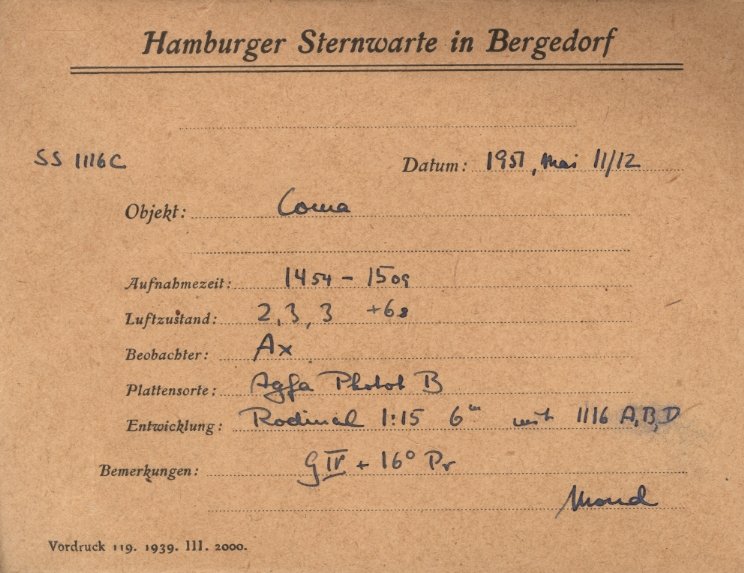 Hamburger Sternwarte in Bergedorf
SS 1116C Datum: 1951, Mai 11/12
Objekt: Coma
Aufnahmezeit: 14 54 - 15 09
Luftzustand: 2, 3, 3 +6.8
Beobachter: Ax
Plattensorte: Agfa Photot B
Entwicklung: Rodinal 1:15 6ᵐ mit 1116 A,B,D
Bemerkungen: G IV + 16° Pr
Mond
Vordruck 119. 1939. III. 2000.